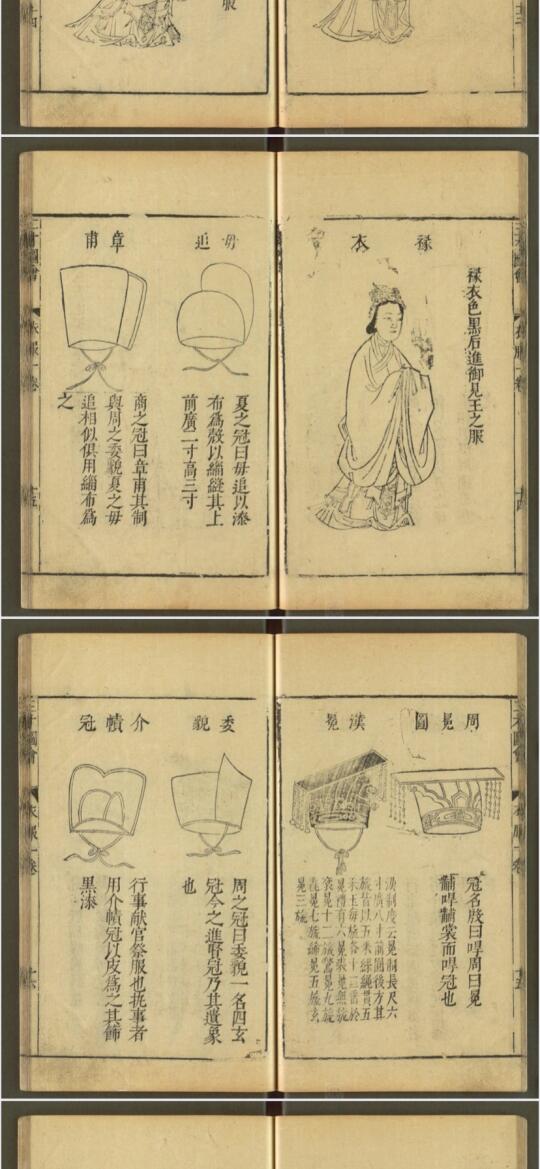 服
褖衣
褖衣色黑后進御見王之服
毋追
夏之冠曰毋追以漆
布爲殼以緇縫其上
前廣二寸高三寸
章甫
商之冠曰章甫其制
與周之委貌夏之毋
追相似俱用緇布爲
之
三才圖會
衣服一卷
十五
周冕圖
冠名殷曰冔周曰冕
黼冔黼裳而冔冠也
漢冕
漢制度云冕制長尺六
寸廣八寸前圓後方其
旒皆以五采絲繩貫五
采玉每旒各十二
冕三旒
委貌
周之冠曰委貌一名四玄
冠今之進賢冠乃其遺象
也
介幘冠
行事献官祭服也执事者
用介幘冠以皮爲之其飾
黑漆
三才圖會
衣服一卷
十六